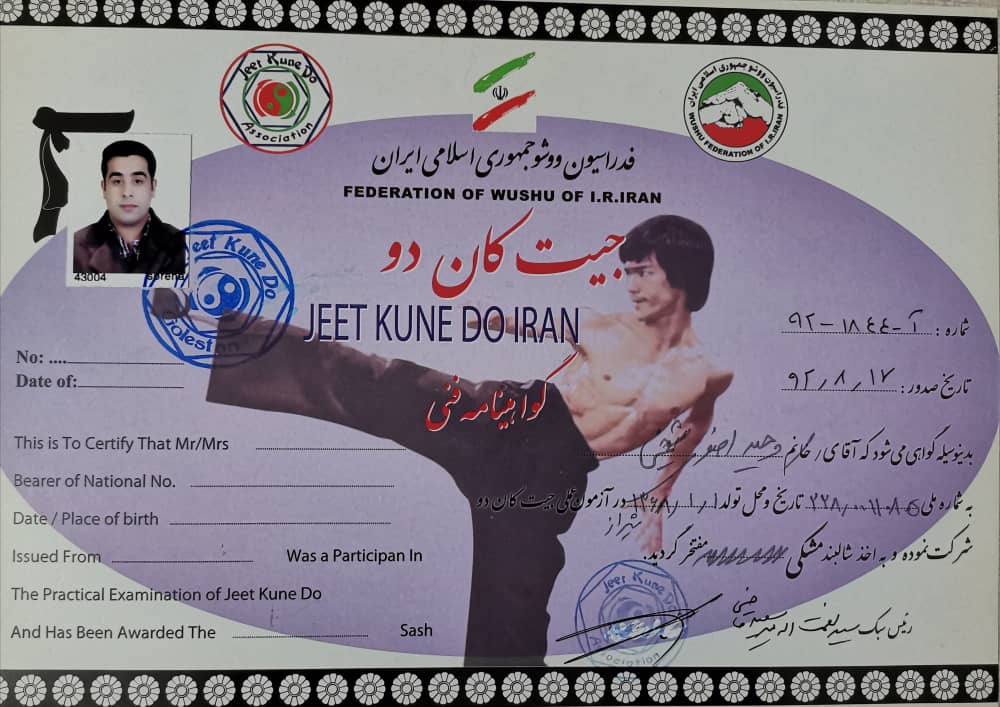 Jeet Kune Do
Association
فدراسیون ووشو جمهوری اسلامی ایران
WUSHU FEDERATION OF I.R.IRAN
فدراسیون ووشو جمهوری اسلامی ایران
FEDERATION OF WUSHU OF I.R.IRAN
جیت کان دو
JEET KUNE DO IRAN
گواهینامه فنی
43004
Jeet Kune Do
شماره: آ-۱۸۴۴-۹۲
تاریخ صدور: ۹۲/۸/۱۷
بدینوسیله گواهی می‌شود که آقای / خانم وحید
به شماره ملی تاریخ و محل تولد ۱۳۶۸/۱/۱ در آزمون عملی جیت کان دو
شیراز
شرکت نموده و به اخذ شالبند مشکی مفتخر گردید.
رئیس سبک سید نعمت اله
No: ....
Date of:
This is To Certify That Mr/Mrs
Bearer of National No.
Date / Place of birth
Issued From Was a Participan In
The Practical Examination of Jeet Kune Do
And Has Been Awarded The Sash
Jeet Kune Do
Association